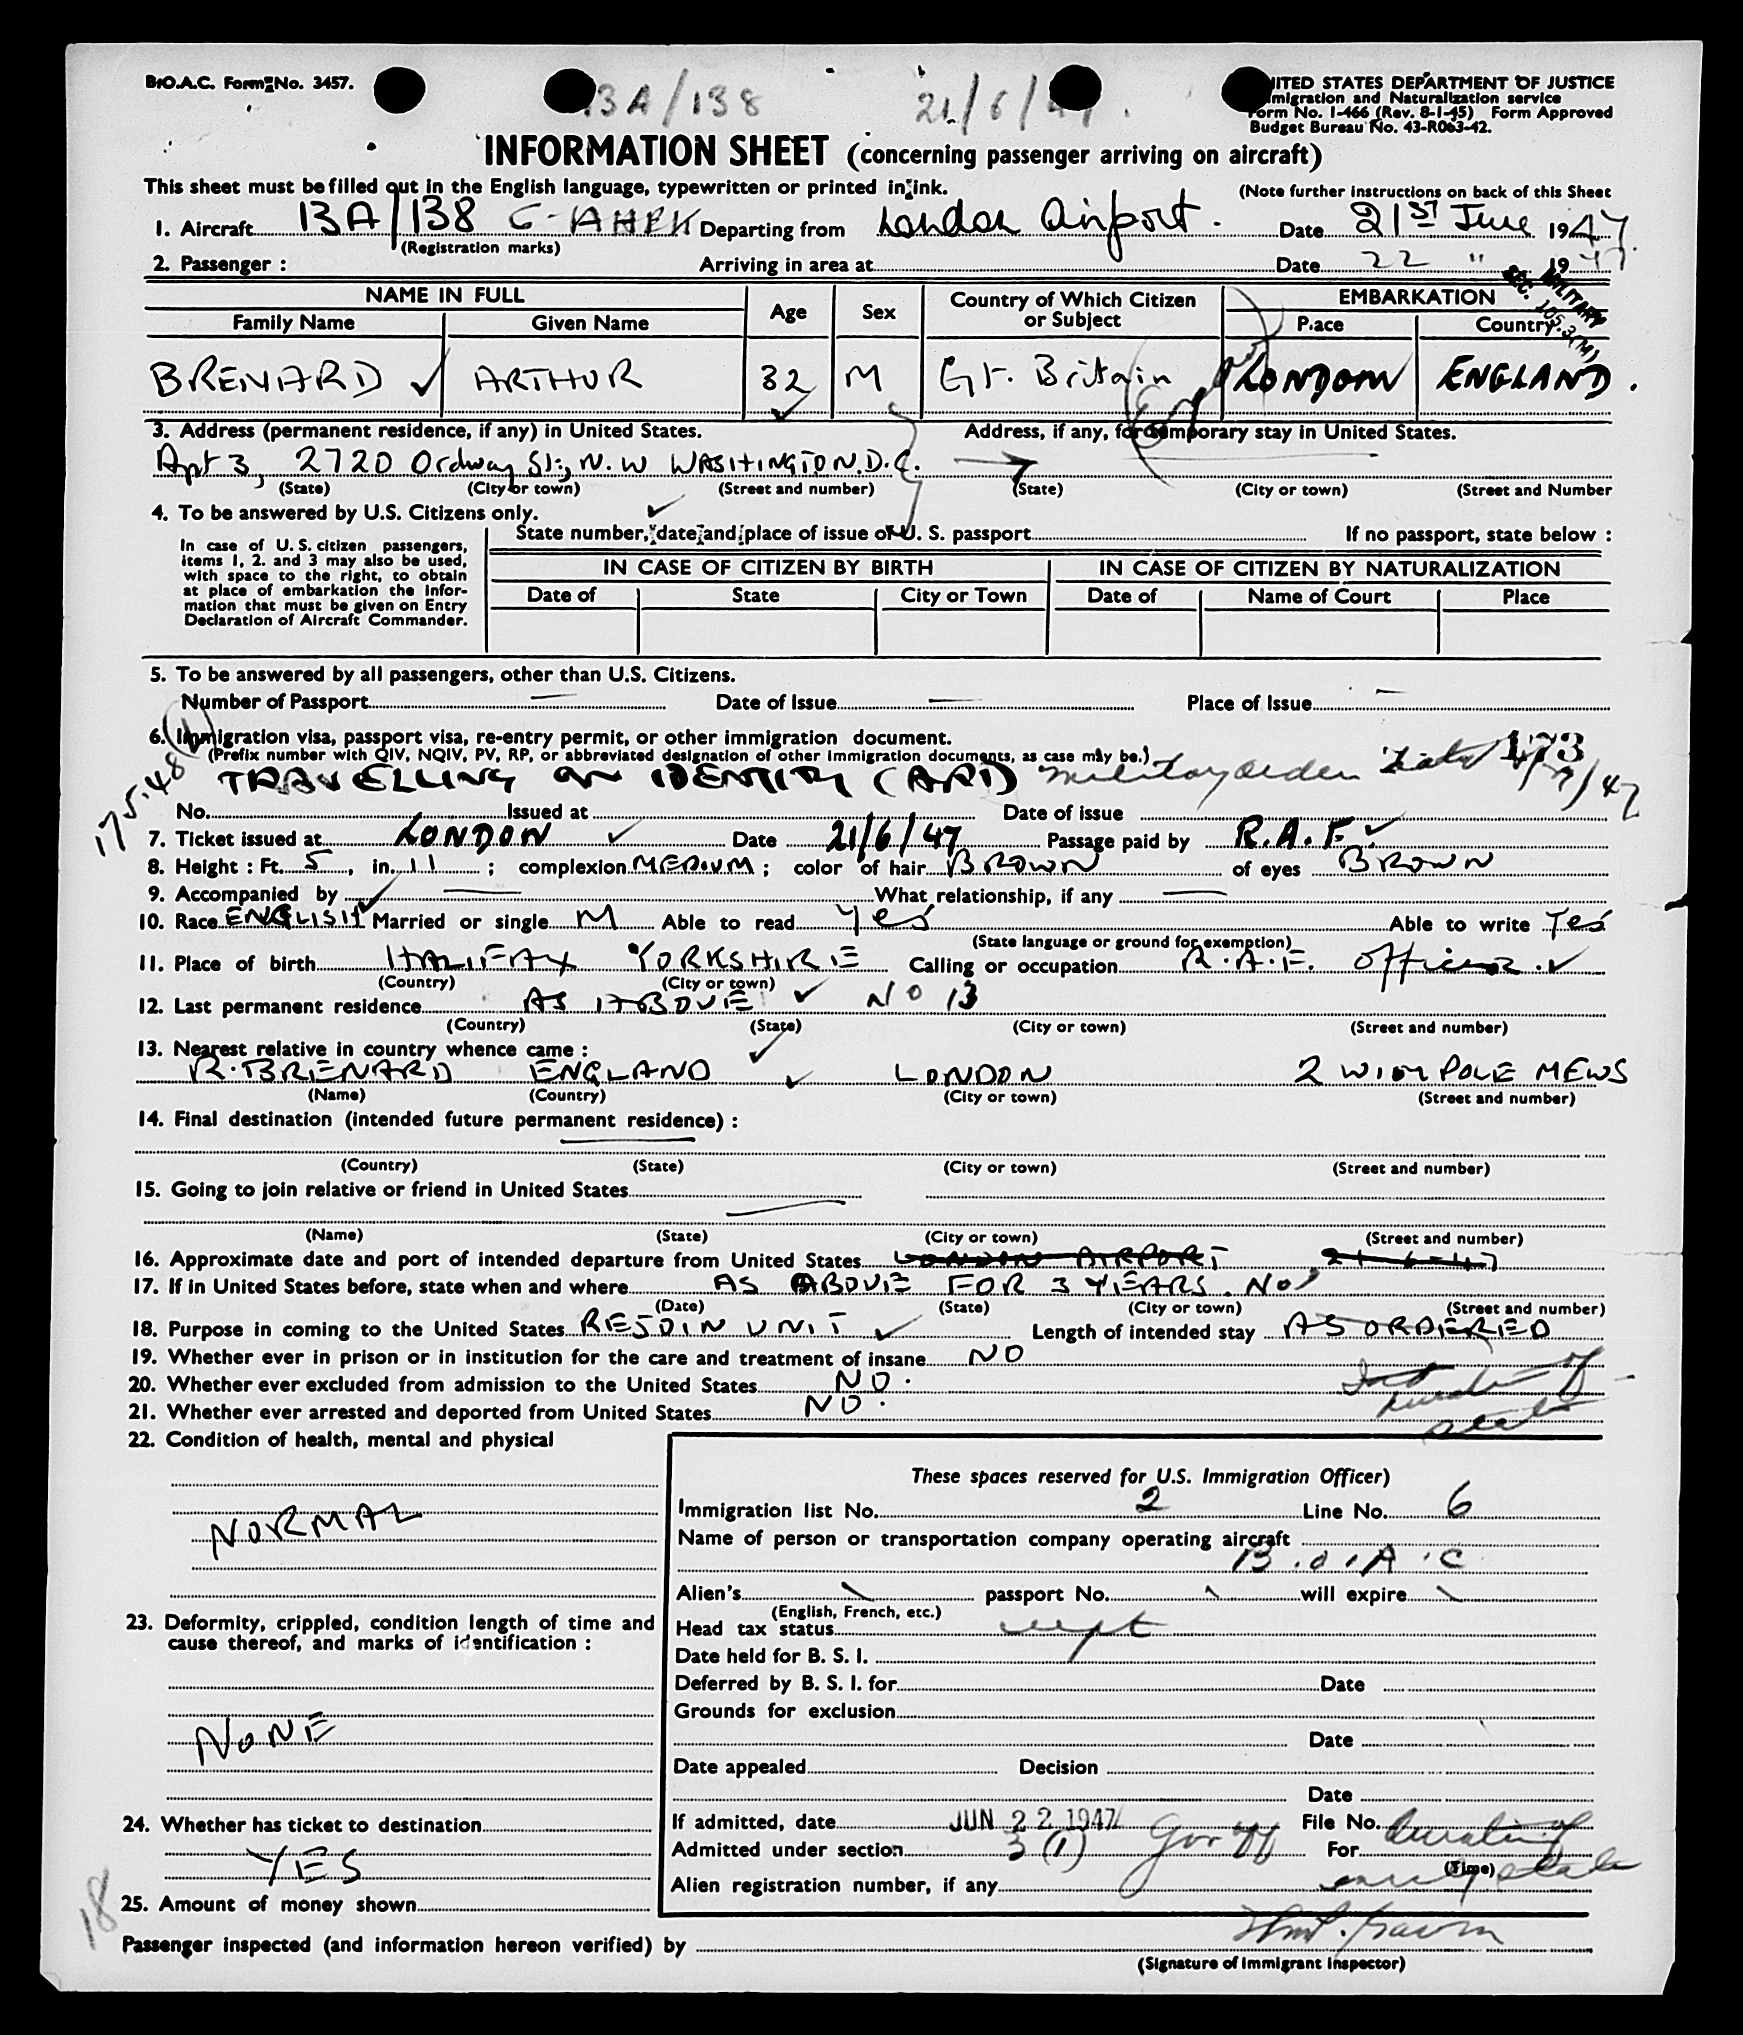 B.O.A.C. Form No. 3457.
13A/138 21/6/47.
UNITED STATES DEPARTMENT OF JUSTICE
Immigration and Naturalization service
Form No. I-466 (Rev. 8-1-45) Form Approved
Budget Bureau No. 43-R063-42.
INFORMATION SHEET (concerning passenger arriving on aircraft)
This sheet must be filled out in the English language, typewritten or printed in ink. (Note further instructions on back of this Sheet
1. Aircraft 13A/138 G-AHEK Departing from London Airport. Date 21ST June 1947.
(Registration marks)
2. Passenger : Arriving in area at Date 22 " 1947
MILITARY
SEC. 105.3(M)
NAME IN FULL Age Sex Country of Which Citizen or Subject EMBARKATION
Family Name Given Name Place Country
BRENARD ✓ ARTHUR 32 M Gt. Britain LONDON ENGLAND.
3. Address (permanent residence, if any) in United States. Address, if any, for temporary stay in United States.
Apt 3, 2720 Ordway St., N.W WASHINGTON. D.C.
(State) (City or town) (Street and number) (State) (City or town) (Street and Number
4. To be answered by U.S. Citizens only.
State number, date and place of issue of U. S. passport If no passport, state below :
In case of U. S. citizen passengers,
items 1, 2. and 3 may also be used,
with space to the right, to obtain
at place of embarkation the infor-
mation that must be given on Entry
Declaration of Aircraft Commander.
IN CASE OF CITIZEN BY BIRTH IN CASE OF CITIZEN BY NATURALIZATION
Date of State City or Town Date of Name of Court Place
5. To be answered by all passengers, other than U.S. Citizens.
Number of Passport — Date of Issue — Place of Issue —
6. Immigration visa, passport visa, re-entry permit, or other immigration document.
(Prefix number with QIV, NQIV, PV, RP, or abbreviated designation of other immigration documents, as case may be.)
175.48
TRAVELLING ON IDENTITY (CARD) military orders 173
No. Issued at Date of issue
7. Ticket issued at LONDON ✓ Date 21/6/47 Passage paid by R.A.F. ✓
8. Height : Ft. 5, in. 11 ; complexion MEDIUM ; color of hair BROWN of eyes BROWN
9. Accompanied by — What relationship, if any —
10. Race ENGLISH Married or single M Able to read Yes Able to write Yes
(State language or ground for exemption)
11. Place of birth HALIFAX YORKSHIRE Calling or occupation R.A.F. Officer. ✓
(Country) (City or town)
12. Last permanent residence AS ABOVE ✓ No 13
(Country) (State) (City or town) (Street and number)
13. Nearest relative in country whence came : ✓
R. BRENARD ENGLAND ✓ LONDON 2 WIMPOLE MEWS
(Name) (Country) (City or town) (Street and number)
14. Final destination (intended future permanent residence) :
(Country) (State) (City or town) (Street and number)
15. Going to join relative or friend in United States
(Name) (State) (City or town) (Street and number)
16. Approximate date and port of intended departure from United States LONDON AIRPORT 21-6-47
17. If in United States before, state when and where AS ABOVE FOR 3 YEARS. No 3
(Date) (State) (City or town) (Street and number)
18. Purpose in coming to the United States REJOIN UNIT ✓ Length of intended stay AS ORDERED
19. Whether ever in prison or in institution for the care and treatment of insane NO
20. Whether ever excluded from admission to the United States NO.
21. Whether ever arrested and deported from United States NO.
duration of
22. Condition of health, mental and physical
NORMAL
23. Deformity, crippled, condition length of time and
cause thereof, and marks of identification :
NONE
24. Whether has ticket to destination
YES
25. Amount of money shown
18
These spaces reserved for U.S. Immigration Officer)
Immigration list No. 2 Line No. 6
Name of person or transportation company operating aircraft
B.O.A.C
Alien's passport No. will expire
(English, French, etc.)
Head tax status exempt
Date held for B. S. I.
Deferred by B. S. I. for Date
Grounds for exclusion
Date
Date appealed Decision
Date
If admitted, date JUN 22 1947 File No.
Admitted under section 3 (1) Gov off For duration of
(Time)
Alien registration number, if any
Passenger inspected (and information hereon verified) by
(Signature of Immigrant Inspector)